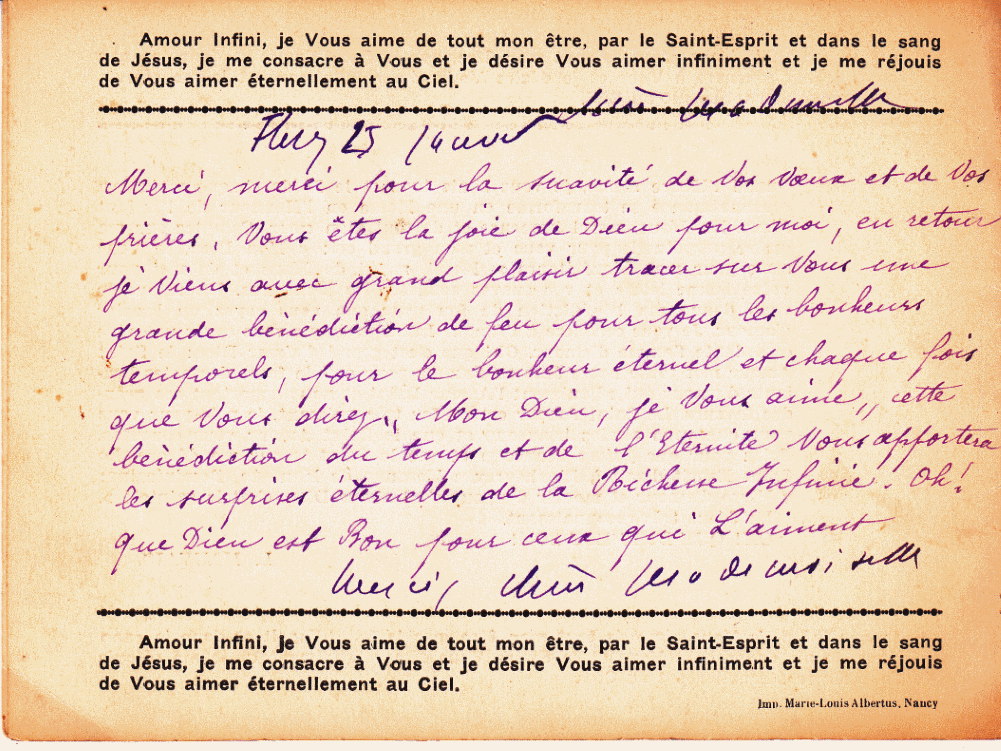 Amour Infini, je Vous aime de tout mon être, par le Saint-Esprit et dans le sang
de Jésus, je me consacre à Vous et je désire Vous aimer infiniment et je me réjouis
de Vous aimer éternellement au Ciel.
Chère Mademoiselle
25 Janvier
Merci, merci pour la suavité de Vos vœux et de Vos
prières, Vous êtes la joie de Dieu pour moi, en retour
je Viens avec grand plaisir tracer sur Vous une
grande bénédiction de feu pour tous les bonheurs
temporels, pour le bonheur éternel et chaque fois
que Vous direz „ Mon Dieu, je Vous aime „ cette
bénédiction du temps et de l'Eternité Vous apportera
les surprises éternelles de la Richesse Infinie. Oh!
que Dieu est Bon pour ceux qui L'aiment
Merci, Chère Mademoiselle
Amour Infini, je Vous aime de tout mon être, par le Saint-Esprit et dans le sang
de Jésus, je me consacre à Vous et je désire Vous aimer infiniment et je me réjouis
de Vous aimer éternellement au Ciel.
Imp. Marie-Louis Albertus, Nancy